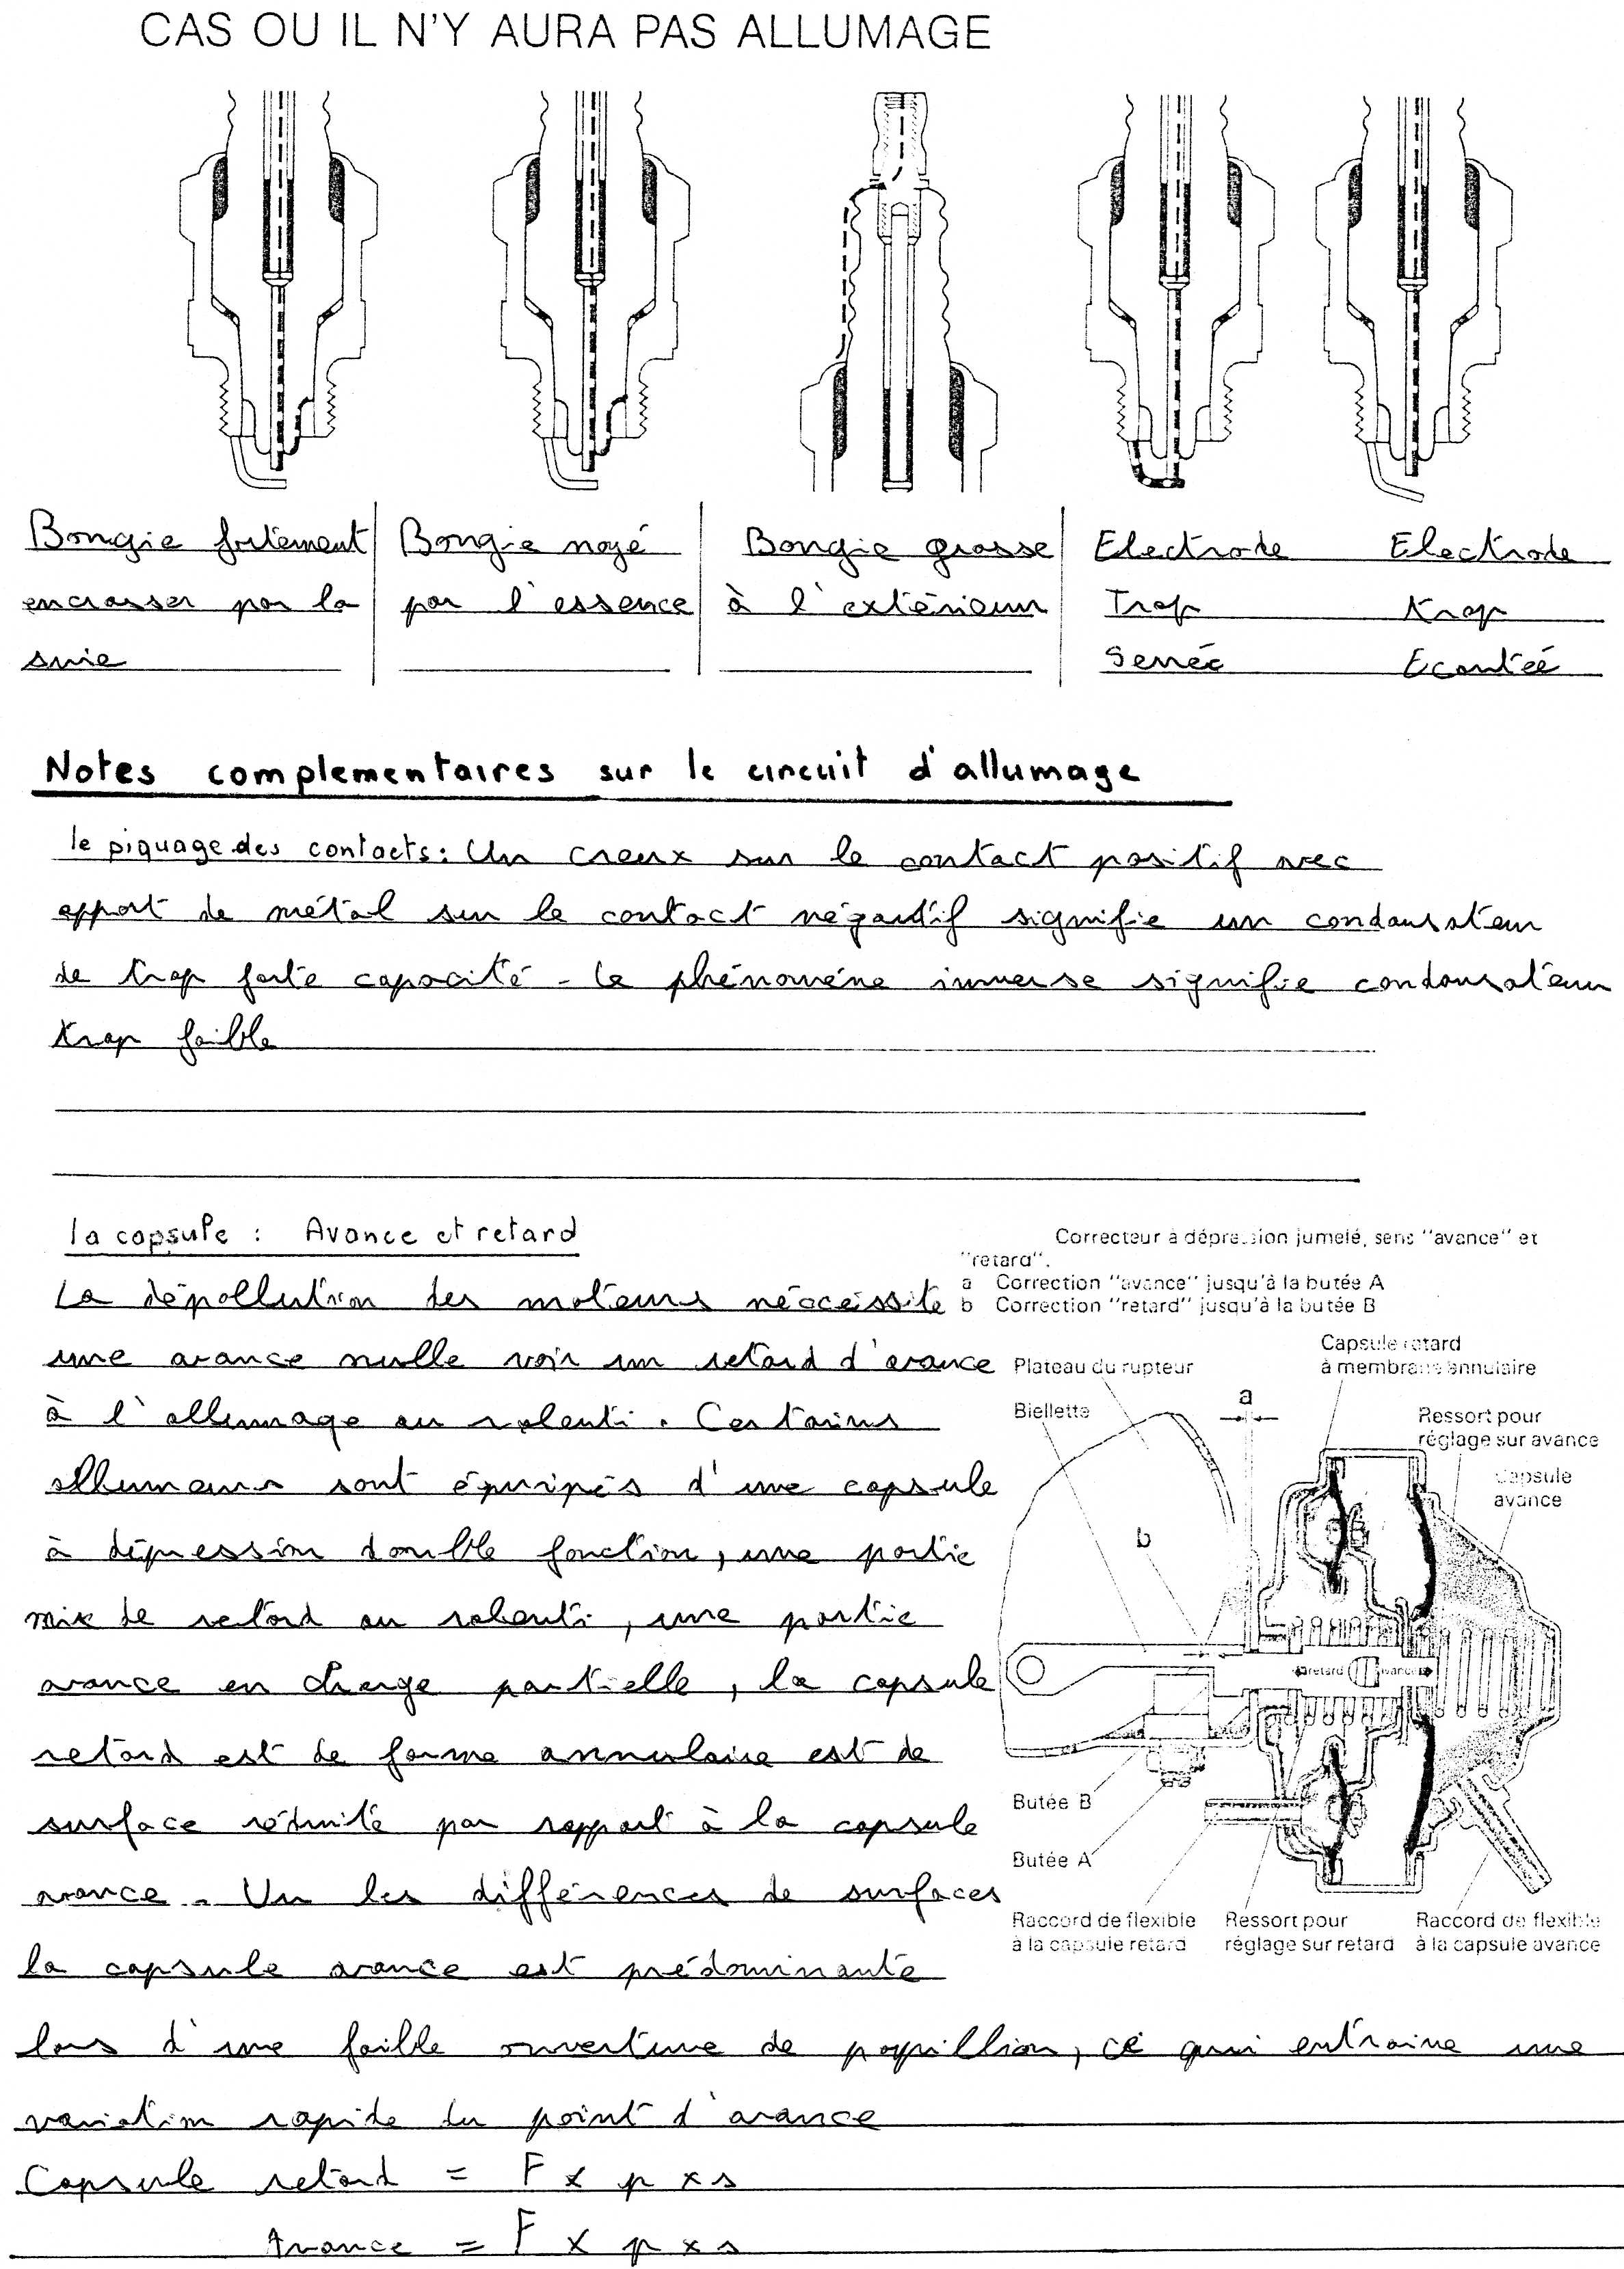 CAS OU IL N'Y AURA PAS ALLUMAGE
Bougie fortement
encrasser par la
suie
Bougie noyé
par l'essence
Bougie grasse
à l'extérieur
Electrode
Trop
Serrée
Electrode
trop
Ecartée
Notes complementaires sur le circuit d'allumage
le piquage des contacts : Un creux sur le contact positif avec
apport de métal sur le contact négatif signifie un condansateur
de trop forte capacité - Le phénomène inverse signifie condansateur
trop faible
la capsule : Avance et retard
La dépollution des moteurs nécessite
une avance nulle voir un retard d'avance
à l'allumage au ralenti. Certains
allumeurs sont équipés d'une capsule
à dépression double fonction, une partie
mix de retard au ralenti, une partie
avance en charge partielle, la capsule
retard est de forme annulaire est de
surface réduite par rapport à la capsule
avance. Vu les différences de surfaces
la capsule avance est prédominante
lors d'une faible ouverture de papillion, ce qui entraine une
variation rapide du point d'avance
Capsule retard = F x p x s
Avance = F x p x s
Correcteur à dépression jumelé, sens "avance" et
"retard".
a Correction "avance" jusqu'à la butée A
b Correction "retard" jusqu'à la butée B
Capsule retard
à membrane annulaire
Plateau du rupteur
a
Biellette
Ressort pour
réglage sur avance
Capsule
avance
b
retard avance
Butée B
Butée A
Raccord de flexible
à la capsule retard
Ressort pour
réglage sur retard
Raccord de flexible
à la capsule avance